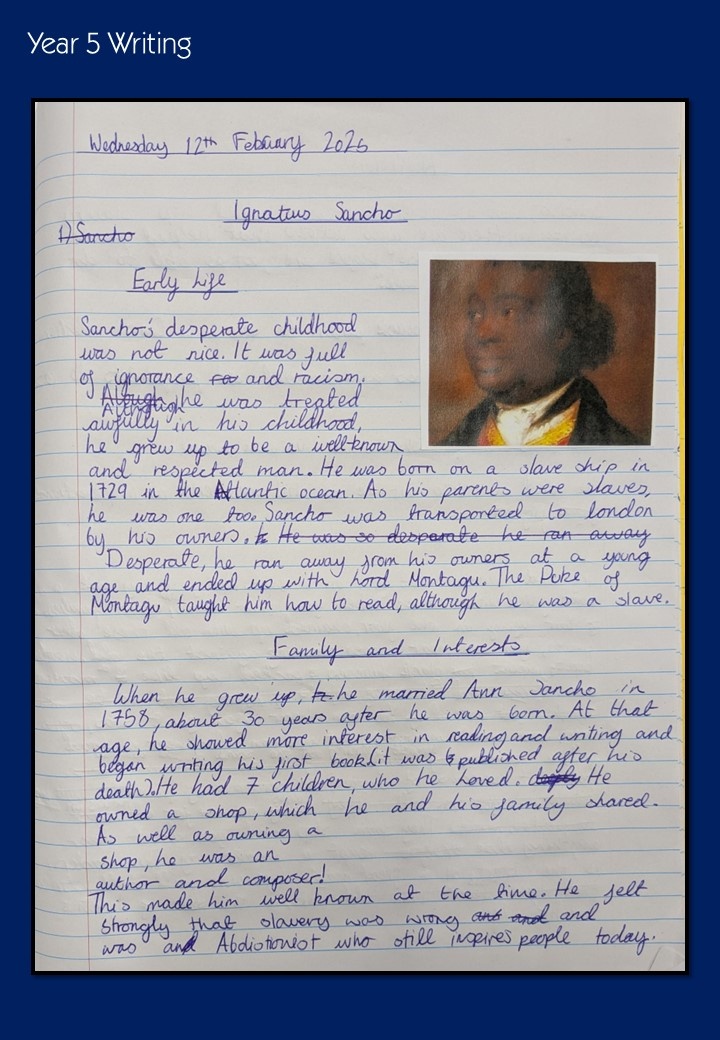 Year 5 Writing
Wednesday 12th Febuary 2025
Ignatius Sancho
1) Sancho
Early Life
Sancho's desperate childhood
was not nice. It was full
of ignorance and racism.
Although he was treated
awfully in his childhood,
he grew up to be a well-known
and respected man. He was born on a slave ship in
1729 in the Atlantic ocean. As his parents were slaves,
he was one too. Sancho was transported to london
by his owners. He was so desparate he ran away
Desperate, he ran away from his owners at a young
age and ended up with Lord Montagu. The Duke of
Montagu taught him how to read, although he was a slave.
Family and Interests
When he grew up, he married Ann Sancho in
1758, about 30 years after he was born. At that
age, he showed more interest in reading and writing and
began writing his first book (it was published after his
death). He had 7 children, who he loved. deeply He
owned a shop, which he and his family shared.
As well as owning a
shop, he was an
author and composer!
This made him well known at the time. He felt
strongly that slavery was wrong and and and
was and Abolitionist who still inspires people today.